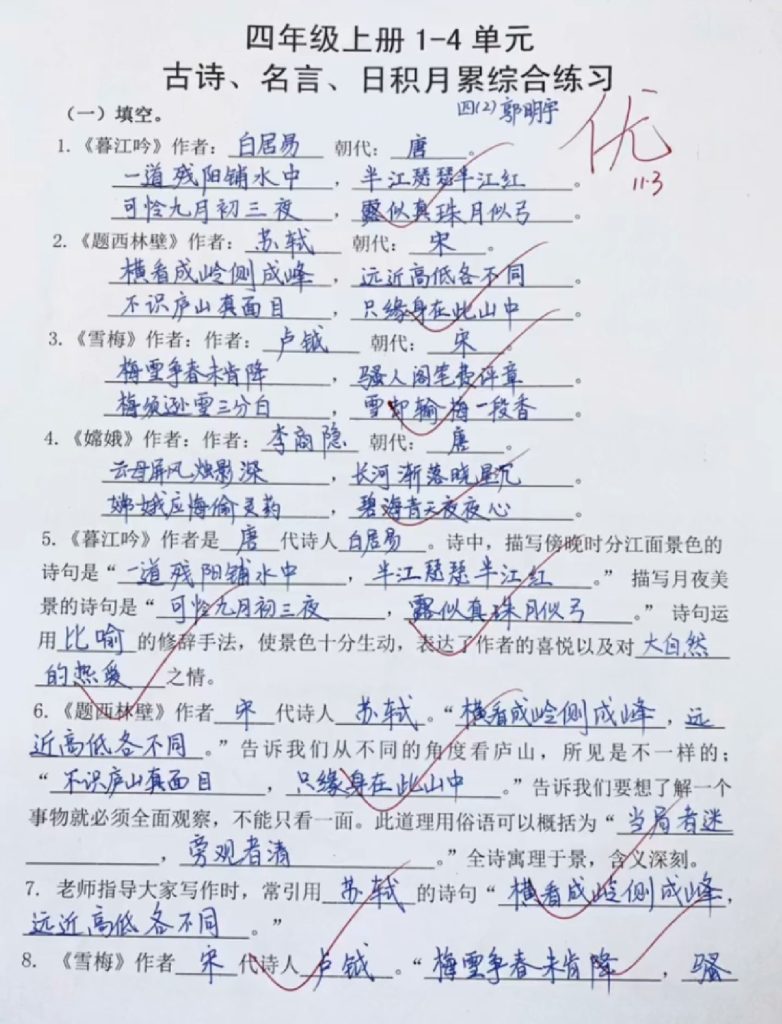 四年级上册 1-4 单元
古诗、名言、日积月累综合练习
四(2) 郭明宇
优
11.3
(一) 填空。
1.《暮江吟》作者: 白居易 朝代: 唐 。
一道残阳铺水中 , 半江瑟瑟半江红 。
可怜九月初三夜 , 露似真珠月似弓 。
2.《题西林壁》作者: 苏轼 朝代: 宋 。
横看成岭侧成峰 , 远近高低各不同 。
不识庐山真面目 , 只缘身在此山中 。
3.《雪梅》作者: 作者: 卢钺 朝代: 宋 。
梅雪争春未肯降 , 骚人阁笔费评章 。
梅须逊雪三分白 , 雪却输梅一段香 。
4.《嫦娥》作者: 作者: 李商隐 朝代: 唐 。
云母屏风烛影深 , 长河渐落晓星沉 。
嫦娥应悔偷灵药 , 碧海青天夜夜心 。
5.《暮江吟》作者是 唐 代诗人 白居易 。诗中，描写傍晚时分江面景色的
诗句是“ 一道残阳铺水中 , 半江瑟瑟半江红 。” 描写月夜美
景的诗句是“ 可怜九月初三夜 , 露似真珠月似弓 。” 诗句运
用 比喻 的修辞手法，使景色十分生动，表达了作者的喜悦以及对 大自然
的热爱 之情。
6.《题西林壁》作者 宋 代诗人 苏轼 。“ 横看成岭侧成峰 , 远
近高低各不同 。”告诉我们从不同的角度看庐山，所见是不一样的；
“ 不识庐山真面目 , 只缘身在此山中 。”告诉我们要想了解一个
事物就必须全面观察，不能只看一面。此道理用俗语可以概括为“ 当局者迷
, 旁观者清 。”全诗寓理于景，含义深刻。
7. 老师指导大家写作时，常引用 苏轼 的诗句“ 横看成岭侧成峰 ,
远近高低各不同 。”
8.《雪梅》作者 宋 代诗人 卢钺 。“ 梅雪争春未肯降 , 骚